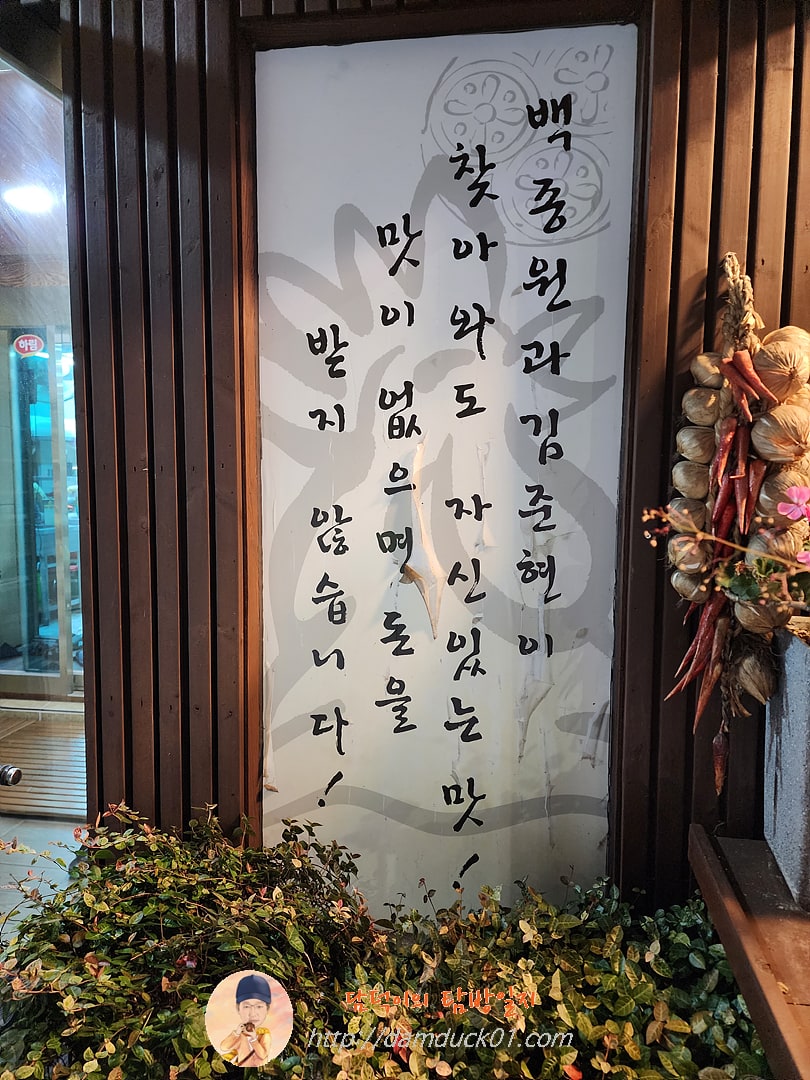 백종원과 김준현이
찾아와도 자신있는 맛!
맛이 없으며 돈을
받지 않습니다!
하림
담덕이의 탐방일지
http://damduck01.com